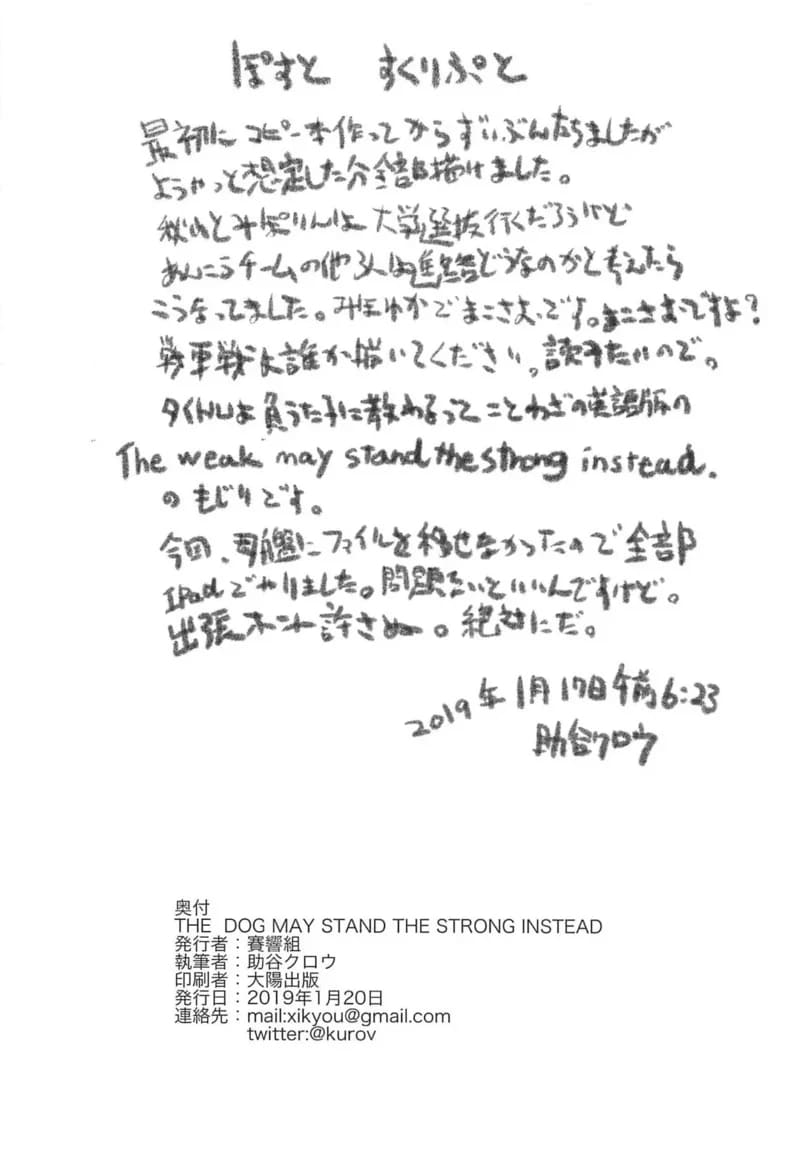 ぽすと すくりぷと
最初に コピー本作ってからずいぶんたちましたが
ようやっと想定した分全部描けました。
秋山とみぽりんは大学選抜行くだろうけど
あんこうチームの他3人は進路どうなのかと考えたら
こうなってました。みほゆかでまこさおです。まこさおですよ?
戦車戦は誰か描いてください。読みたいので。
タイトルは負うた子に教わるってことわざの英語版の
The weak may stand the strong instead.
のもじりです。
今回、母艦にファイルを移せなかったので全部
iPadでやりました。問題ないといいんですけど。
出張ホント許さぬー。絶対にだ。
2019年1月17日午前6:23
助谷クロウ
奥付
THE DOG MAY STAND THE STRONG INSTEAD
発行者:賽響組
執筆者:助谷クロウ
印刷者:大陽出版
発行日:2019年1月20日
連絡先:mail:xikyou@gmail.com
twitter:@kurov